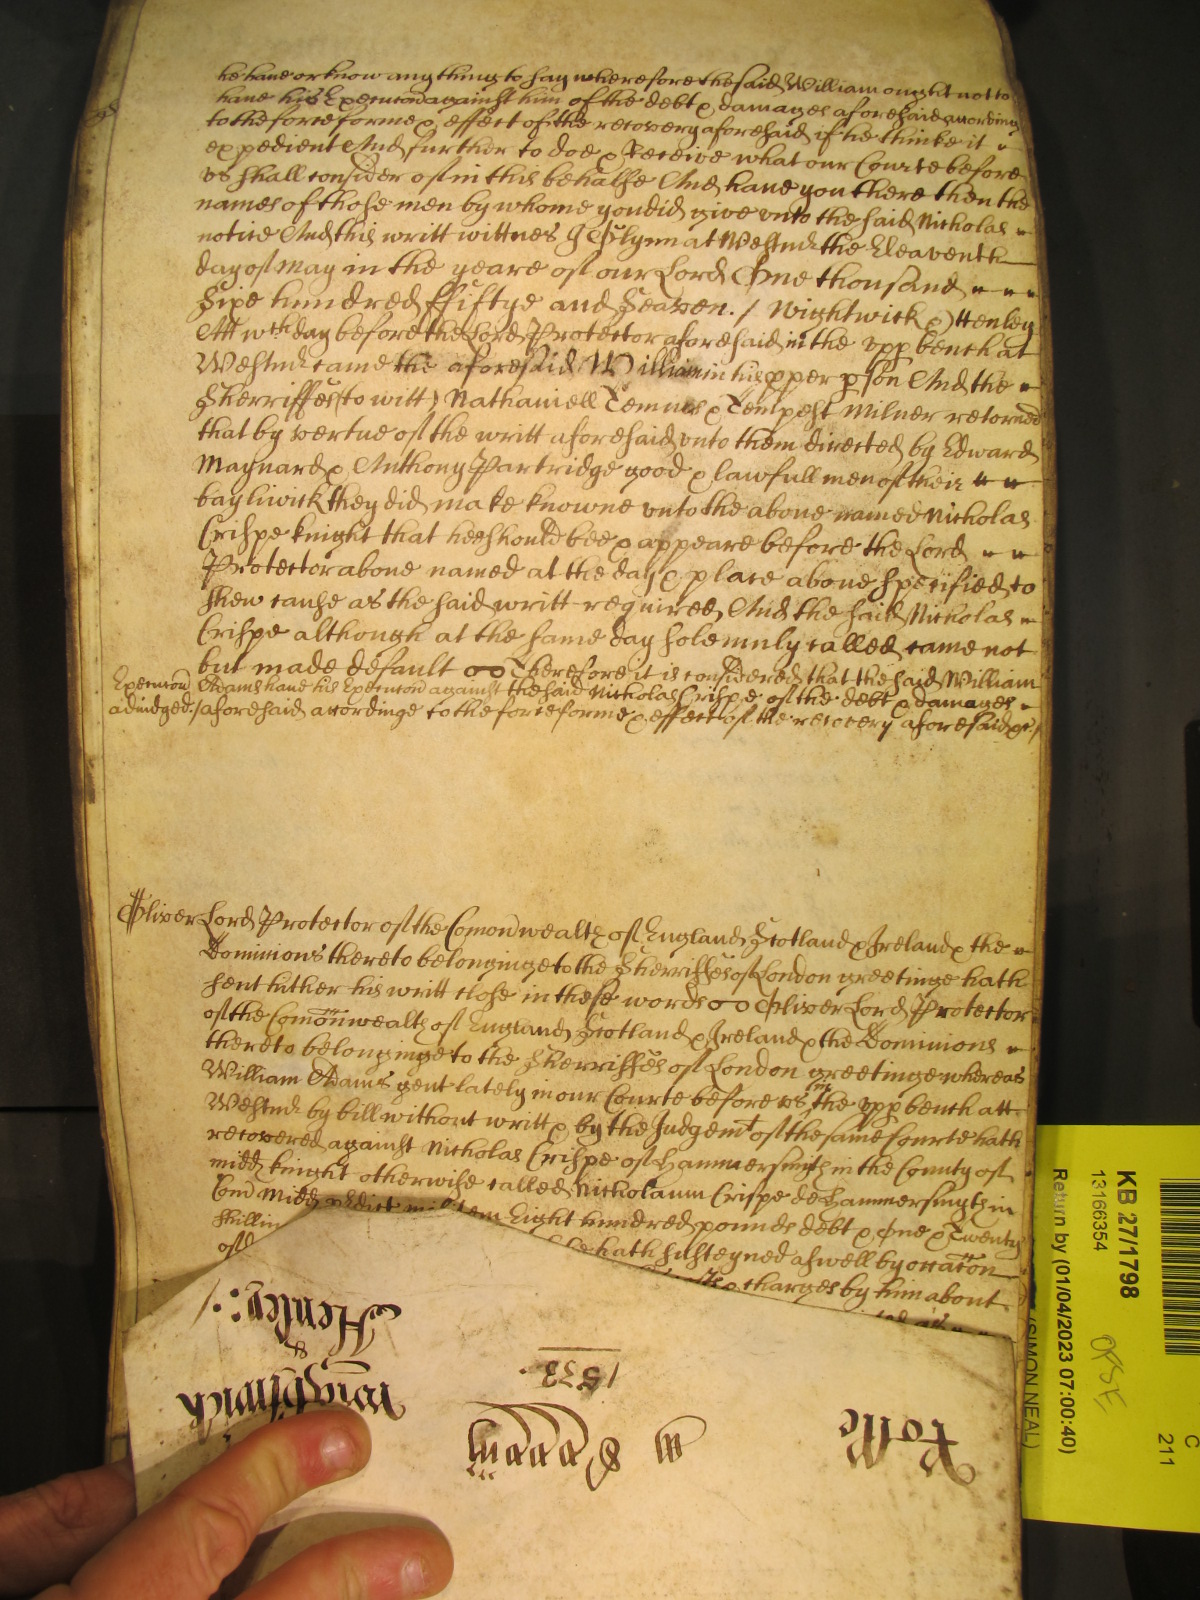 he have or know any thing to say wherefore the said William ought not to
have his Execucon against him of the debt & damages aforesaid according
to the force forme & effect of the recovery aforesaid if he thinke it
expedient And further to doe & Receive what our Courte before
us shall consider of in this behalfe And have you there then the
names of those men by whome you did give unto the said Nicholas
notice And this writt wittnes J Glynn at Westmr the Eleaventh
day of May in the yeare of our Lord One thousand
Sixe hundred ffiftye and Seaven. / Wightwick & Henley
Att wch day before the Lord Protector aforesaid in the upp bench at
Westmr came the aforesaid William in his pper pson And the
Sherriffes (to witt) Nathaniell Temms & Tempest Milner retorned
that by vertue of the writt aforesaid unto them directed by Edward
Maynard & Anthony Partridge good & lawfull men of their
bayliwick they did make knowne unto the above named Nicholas
Crispe knight that hee should bee & appeare before the Lord
Protector above named at the day & place above specified to
shew cause as the said writt required, And the said Nicholas
Crispe although at the same day solemnly called came not
but made default Therefore it is considered that the said William
Execucon Adams have his Execucon against the said Nicholas Crispe of the debt & damages
adiudged./ aforesaid accordinge to the force forme & effect of the recovery aforesaid &c /
Oliver Lord Protector of the Comonwealth of England Scotland & Ireland & the
Dominions thereto belonginge to the Sherriffes of London greetinge hath
sent hither his writt close in these words Oliver Lord Protector
of the Comonwealth of England Scotland & Ireland & the Dominions
thereto belonginge to the Sherriffes of London greetinge whereas
William Adams gent lately in our Courte before us in the upp bench att
Westmr by bill without writt & by the Judgemt of the same Courte hath
recovered against Nicholas Crispe of Hammersmyth in the County of
Midd knight otherwise called Nicholaum Crispe de Hammersmyth in
Com Midd pdict militem Eight hundred pounds debt & one & Twenty
shillin
of d hath susteyned aswell by occacon
& charges by him about
Rolle
1532
Wightwick
&
Henley
KB 27/1798
13166354
Return by (01/04/2023 07:00:40)
(SIMON NEAL)
C
211